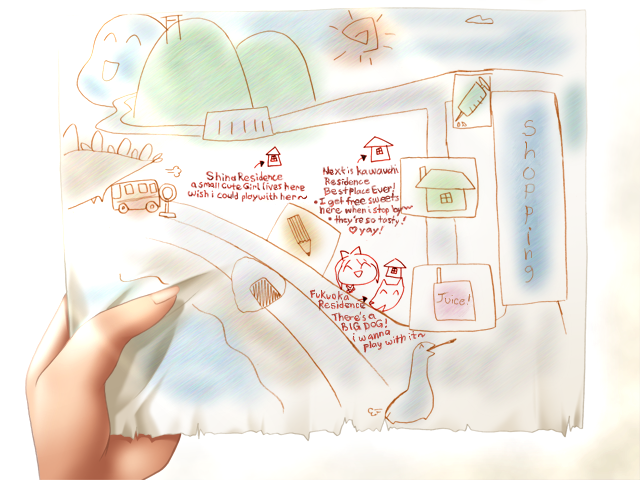 Shopping
Shina Residence
a small cute Girl lives here
wish i could play with her~
Next is kawauchi
Residence
Best place Ever!
• I get free sweets
here when i stop by~
• they're so tasty!
♡ yay!
Juice!
Fukuoka
Residence
There's a
BIG DOG!
i wanna
play with it~